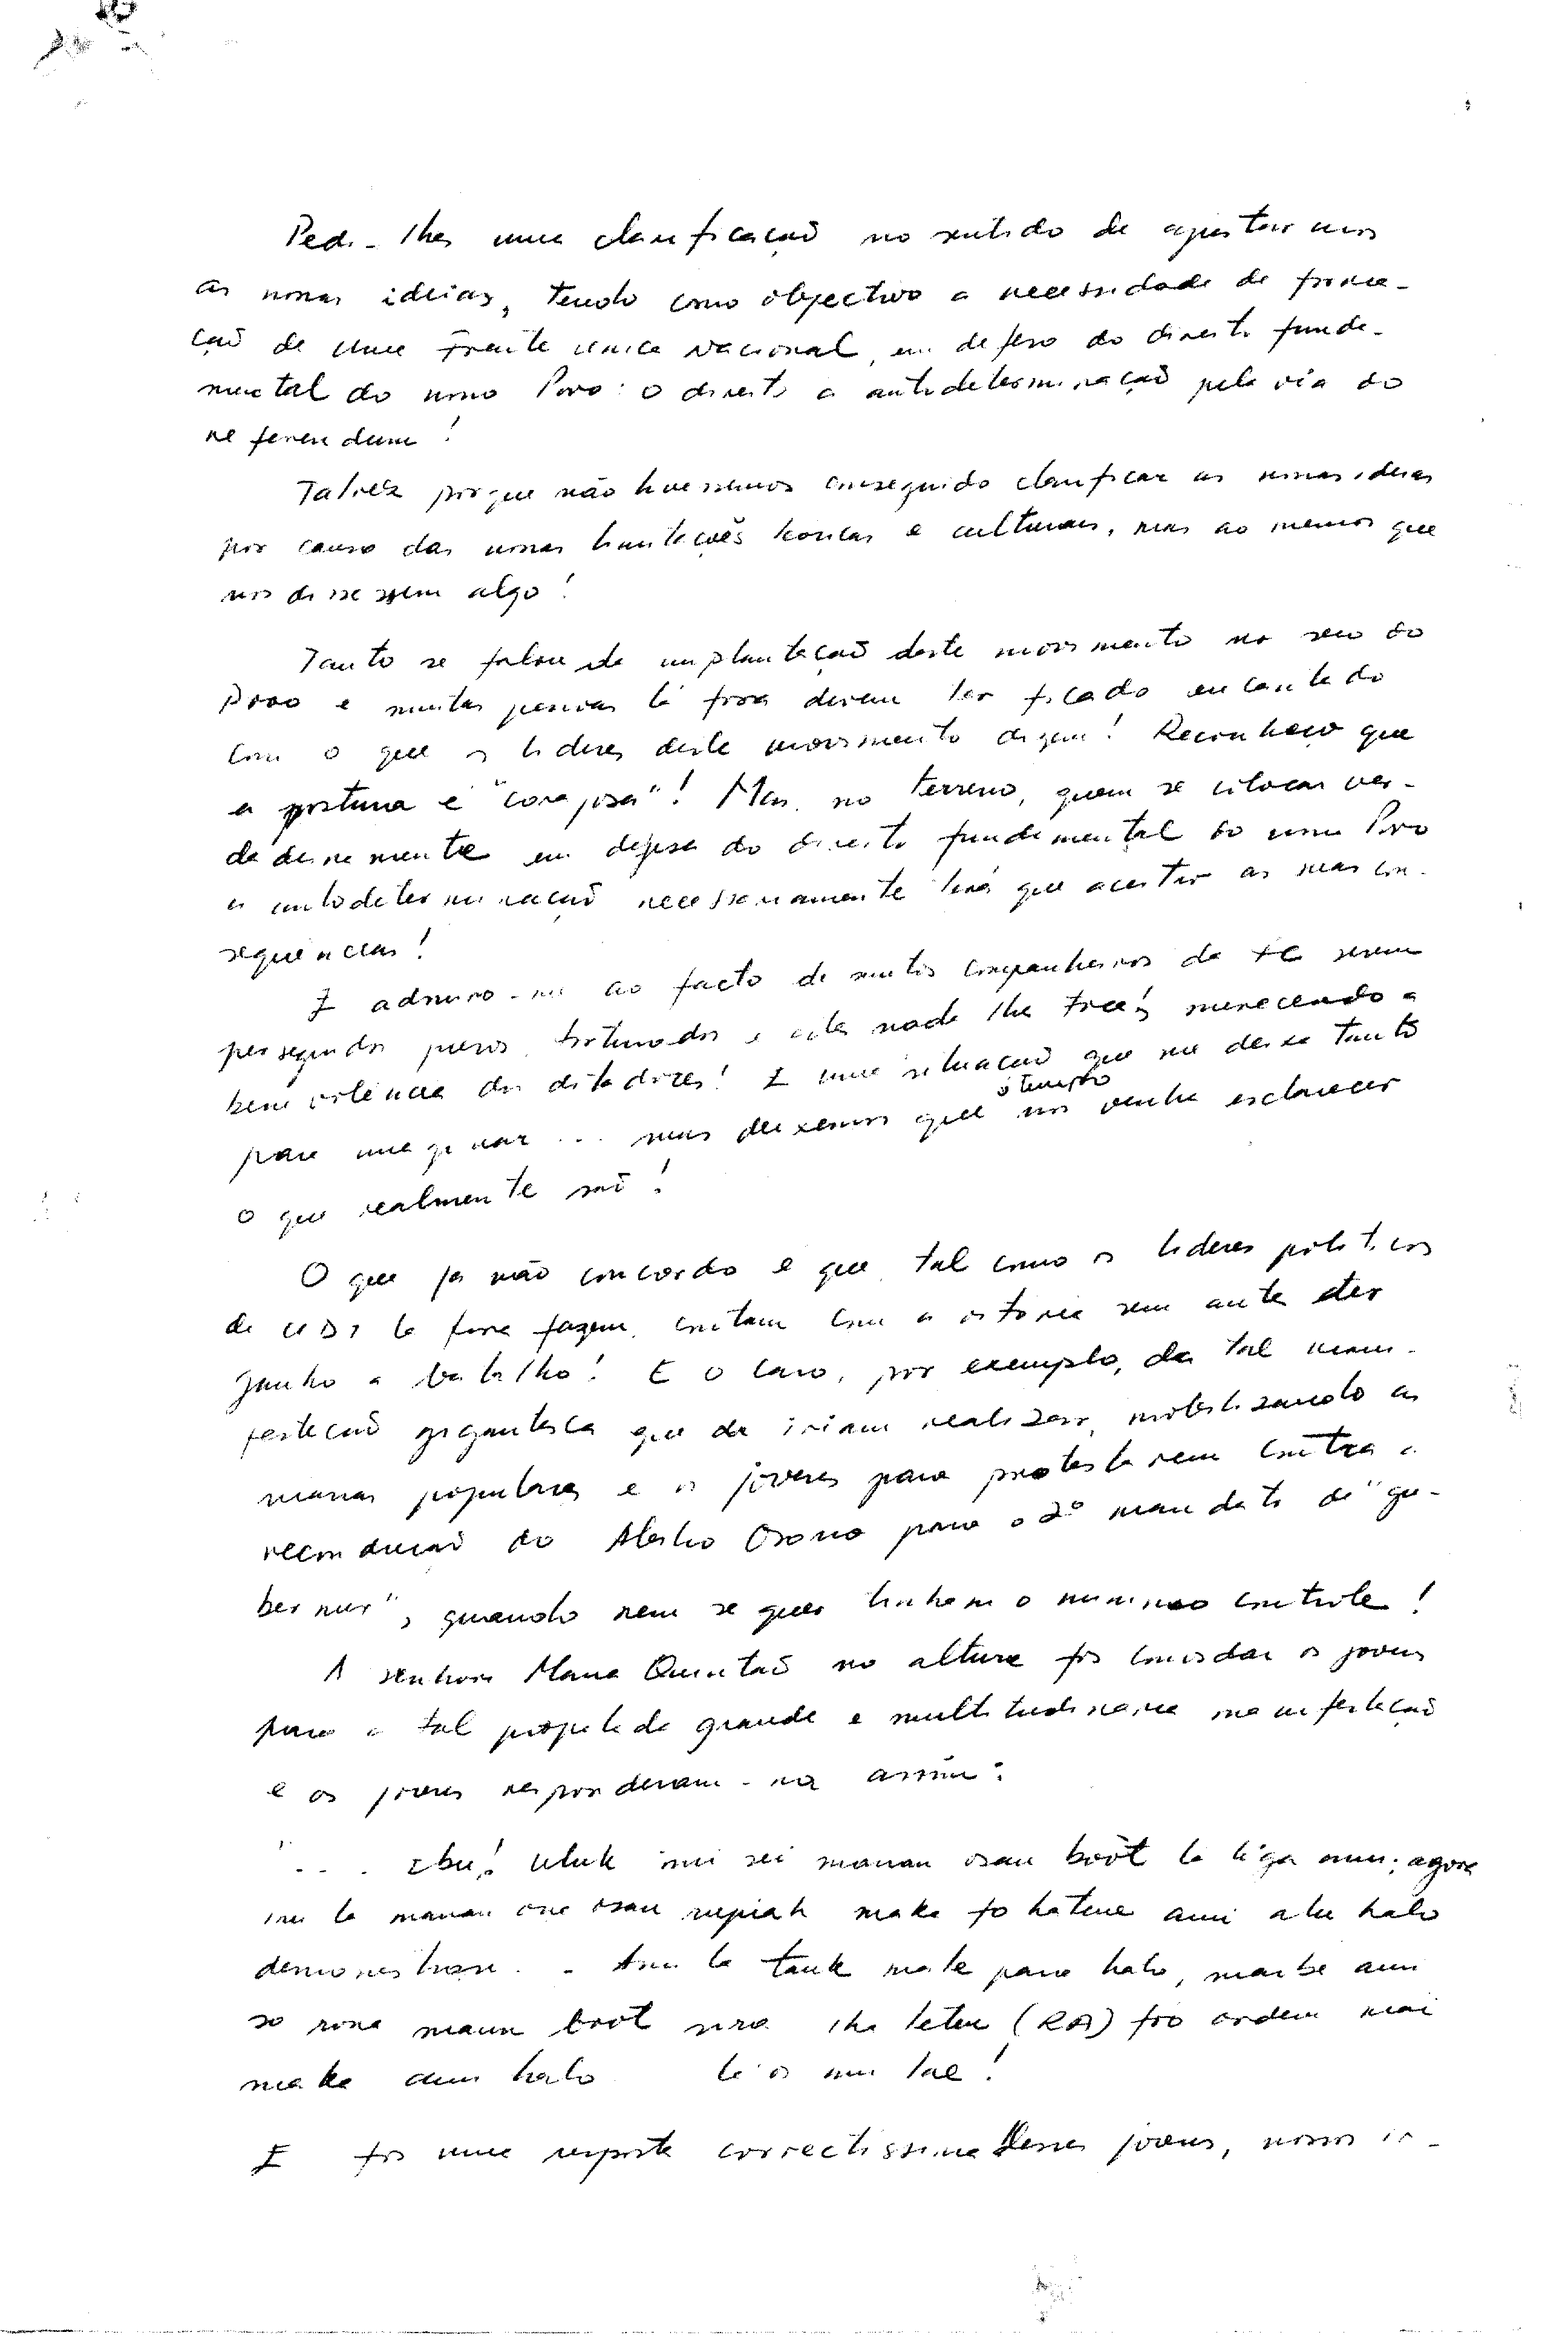 Pedi-lhes uma clarificação no sentido de ajustarmos
as nossas ideias, tendo como objectivo a necessidade de forma-
ção de uma Frente Única Nacional, em defesa do direito funda-
mental do nosso Povo: o direito a autodeterminação pela via do
referendum!
Talvez porque não houvessemos conseguido clarificar as nossas ideias
por causa das nossas limitações teoricas e culturais, mas ao menos que
nos dissessem algo!
Tanto se falou da implantação deste movimento no seio do
Povo e muitas pessoas lá fora devem ter ficado encantado
com o que os lideres deste movimento dizem! Reconheço que
a postura é "corajosa"! Mas, no terreno, quem se colocar ver-
dadeiramente em defesa do direito fundamental do nosso Povo
a autodeterminação necessariamente terá que aceitar as suas con-
sequências!
E admiro-me ao facto de muitos companheiros da FC serem
perseguidos, presos, torturados e eles nada lhe toca, merecendo a
benevolência dos ditadores! É uma situação que me deixa tanto
para imaginar ... mas deixemos que o tempo nos venha esclarecer
o que realmente são!
O que já não concordo é que tal como os lideres politicos
da UDT lá fora fazem, contam com a vitoria sem antes ter
ganho a batalha! É o caso, por exemplo, da tal mani-
festação gigantesca que iriam realizar, mobilizando as
massas populares e os jovens para protestarem contra a
recondução do Abilio Osorio para o 2º mandato de "gu-
bernur", quando nem sequer tinham o minimo controle!
A senhora Maria Quintão na altura foi convidar os jovens
para a tal propalada grande e multitudinaria manifestação
e os jovens responderam-na assim:
"... Ibu! Uluk imi sei manan osan boòt la liga ami; agora
imi la manan ona osan rupiah maka fo hatene ami atu halo
demonstrasi.. Ami la tauk mate para halo, maibe ami
so rona maun boot sira iha leten (RA) fo ordem mai
maka ami halo tal!
E foi uma resposta correctissima desses jovens, nossos ir-